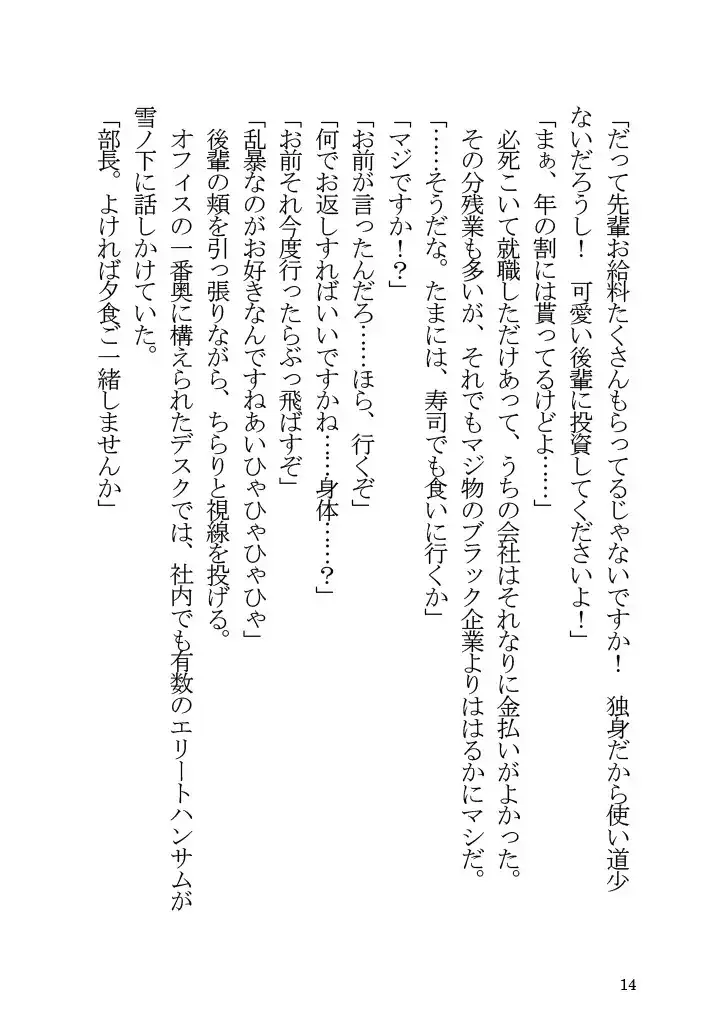 「だって先輩お給料たくさんもらってるじゃないですか！　独身だから使い道少
ないだろうし！　可愛い後輩に投資してくださいよ！」
「まぁ、年の割には貰ってるけどよ……」
　必死こいて就職しただけあって、うちの会社はそれなりに金払いがよかった。
　その分残業も多いが、それでもマジ物のブラック企業よりははるかにマシだ。
「……そうだな。たまには、寿司でも食いに行くか」
「マジですか！？」
「お前が言ったんだろ……ほら、行くぞ」
「何でお返しすればいいですかね……身体……？」
「お前それ今度行ったらぶっ飛ばすぞ」
「乱暴なのがお好きなんですねあいひゃひゃひゃひゃ」
　後輩の頬を引っ張りながら、ちらりと視線を投げる。
　オフィスの一番奥に構えられたデスクでは、社内でも有数のエリートハンサムが
雪ノ下に話しかけていた。
「部長。よければ夕食ご一緒しませんか」
14